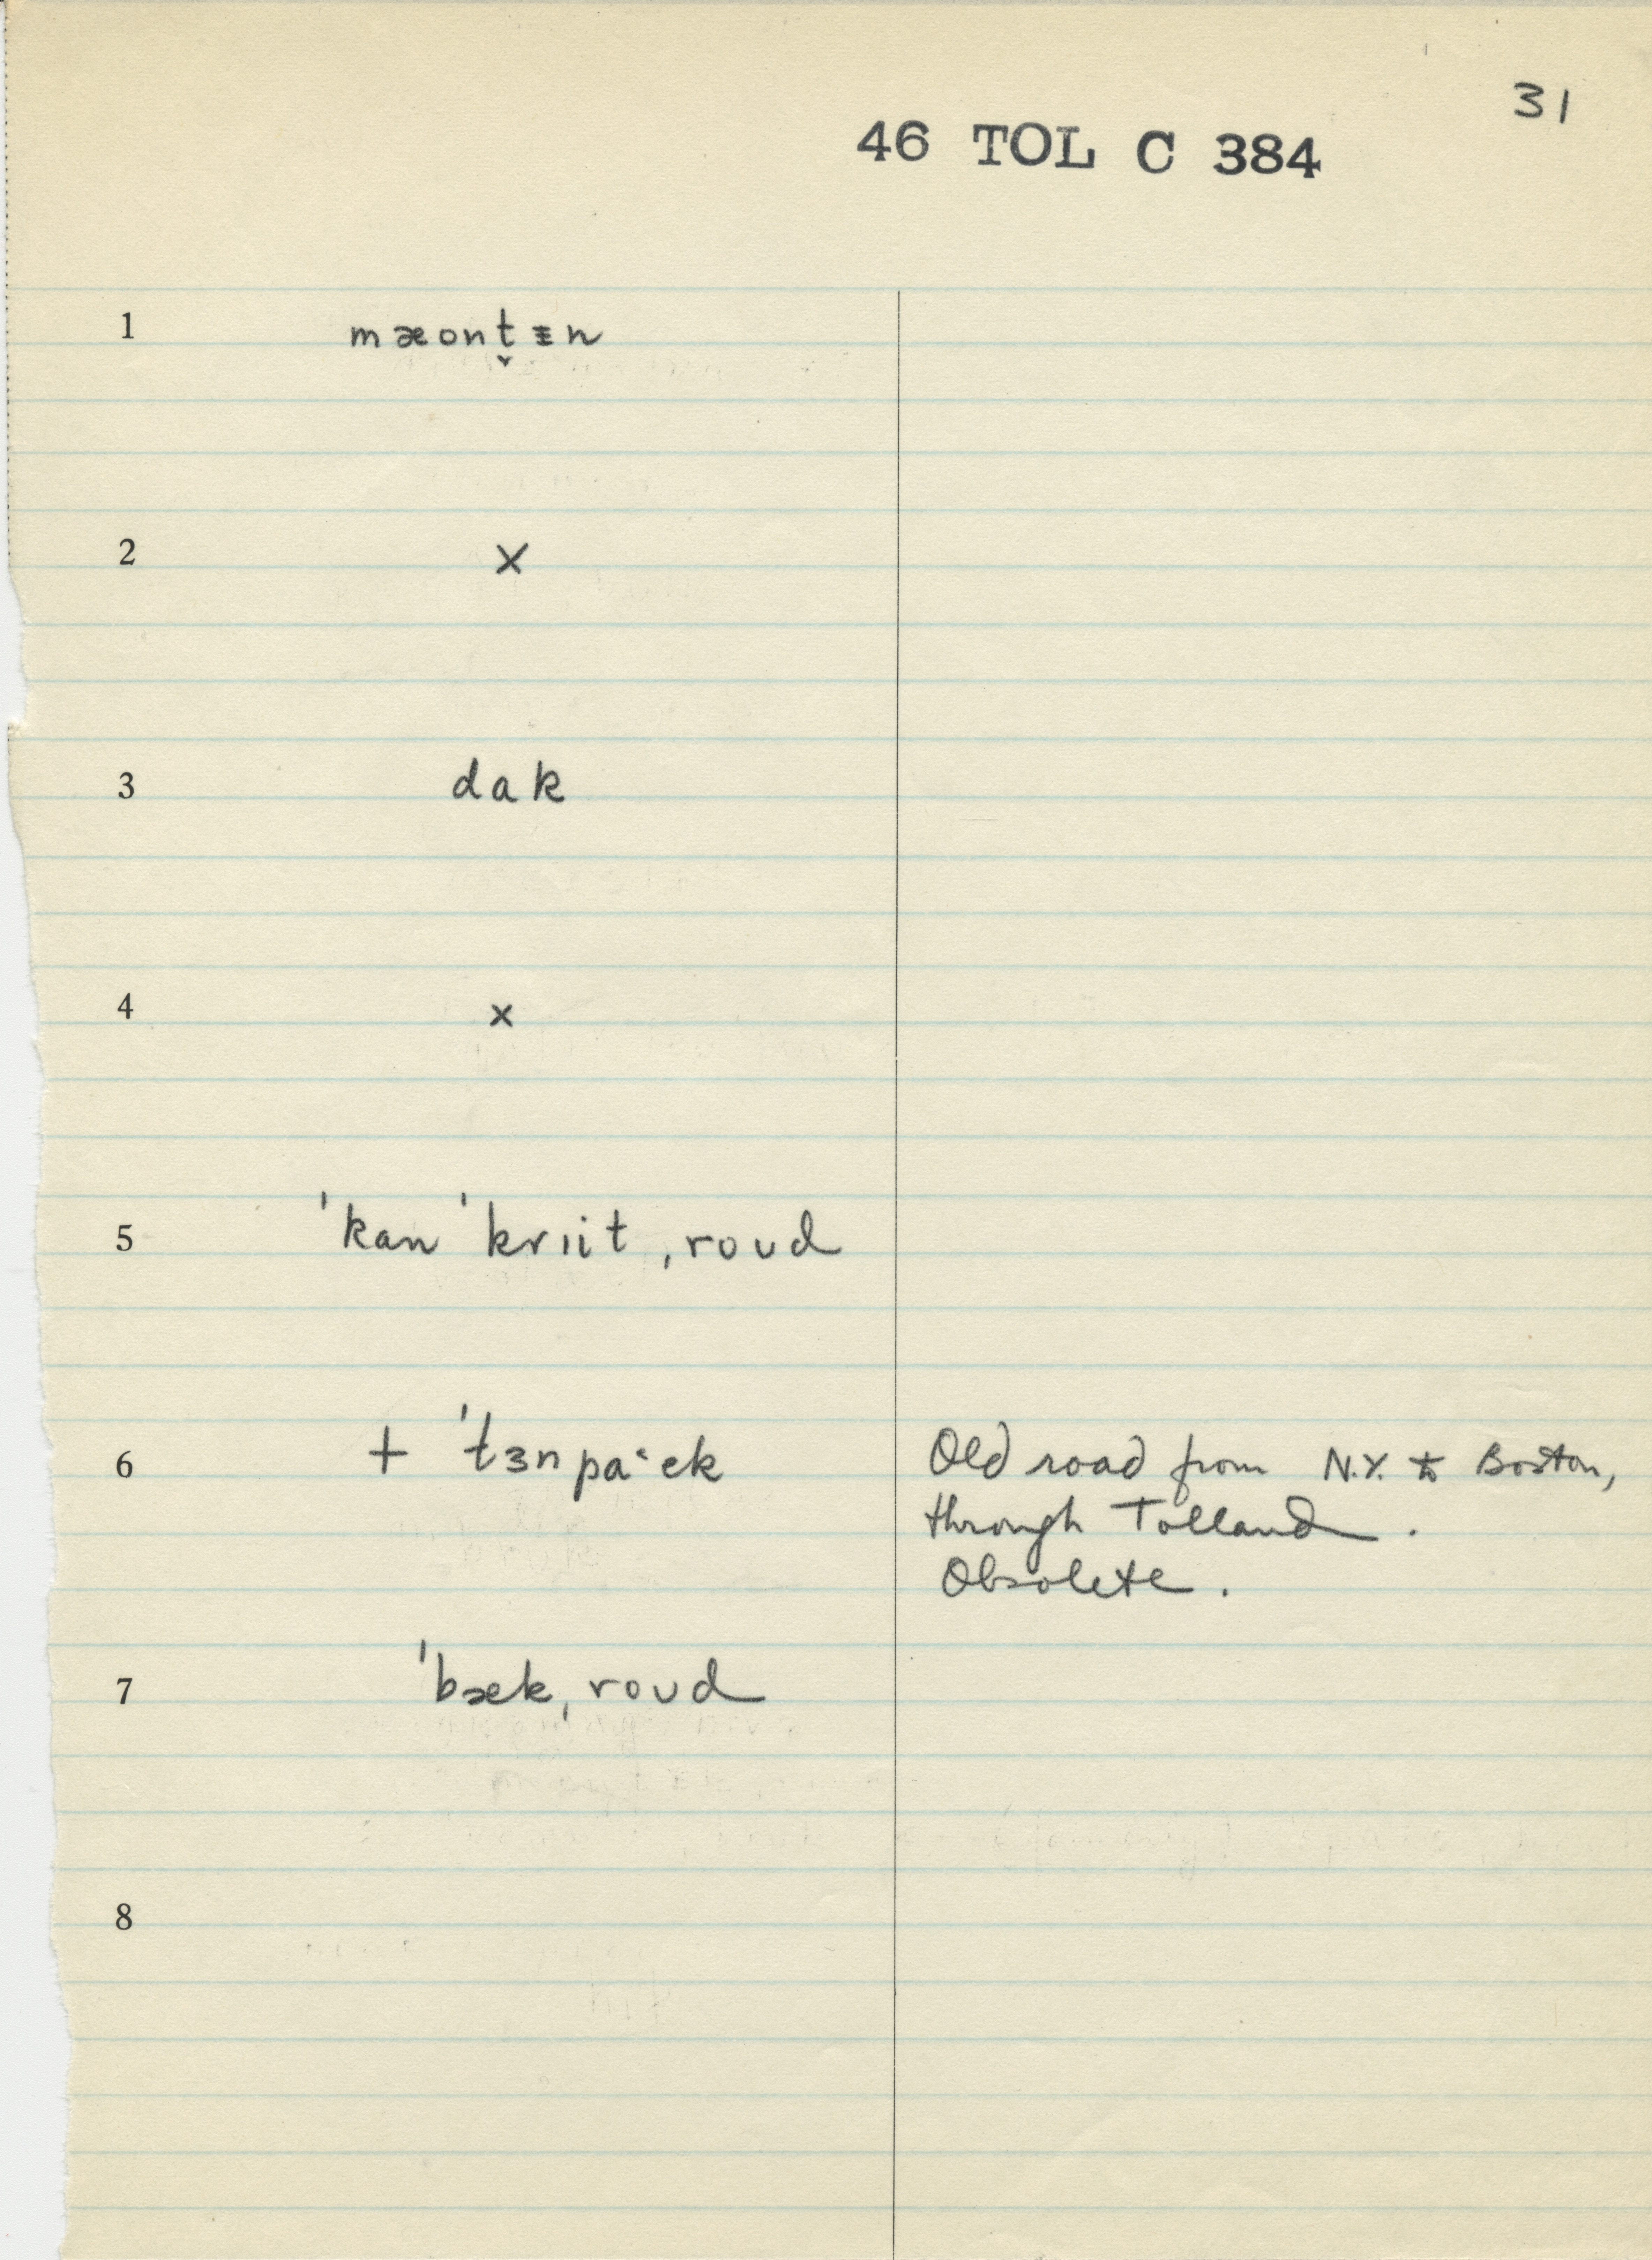 31
46 TOL C 384
1 mæont̬ᵻn
2 x
3 dak
4 x
5 ˈkan ˈkrɪit ˌroʊd
6 + ˈtɜnpaˑɛk Old road from N.Y. to Boston,
through Tolland.
Obsolete.
7 ˈbæk ˌroʊd
8